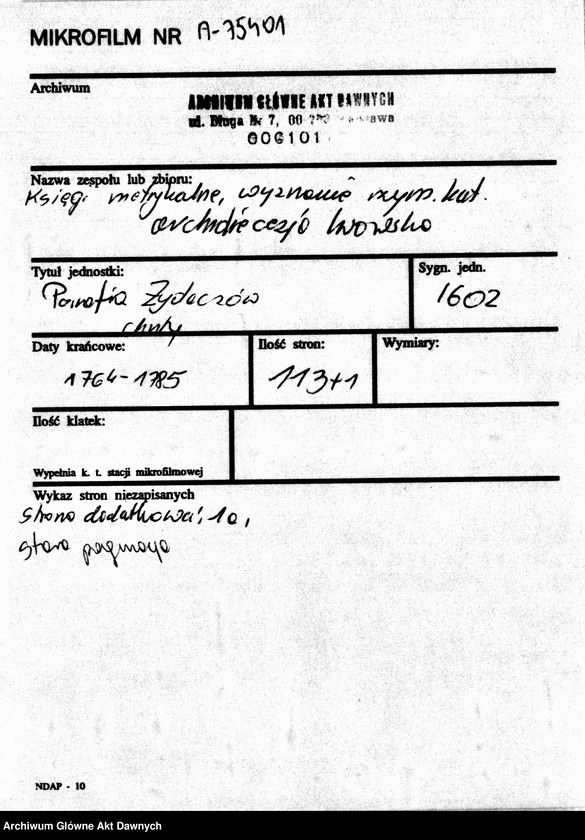 MIKROFILM NR A-75401
Archiwum
ARCHIWUM GŁÓWNE AKT DAWNYCH
ul. Długa Nr 7, 00
006101
Nazwa zespołu lub zbioru:
Księgi metrykalne, wyznanie rzym. kat.
archidiecezja lwowska
Tytuł jednostki:
Parafia Żydaczów
chrzty
Sygn. jedn.
1602
Daty krańcowe:
1764-1785
Ilość stron:
113+1
Wymiary:
Ilość klatek:
Wypełnia k. t. stacji mikrofilmowej
Wykaz stron niezapisanych
strona dodatkowa: 1a,
stara paginacja
NDAP - 10
Archiwum Główne Akt Dawnych